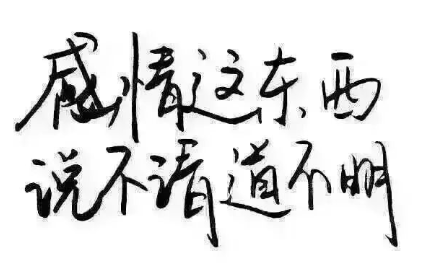 感情这东西
说不清道不明